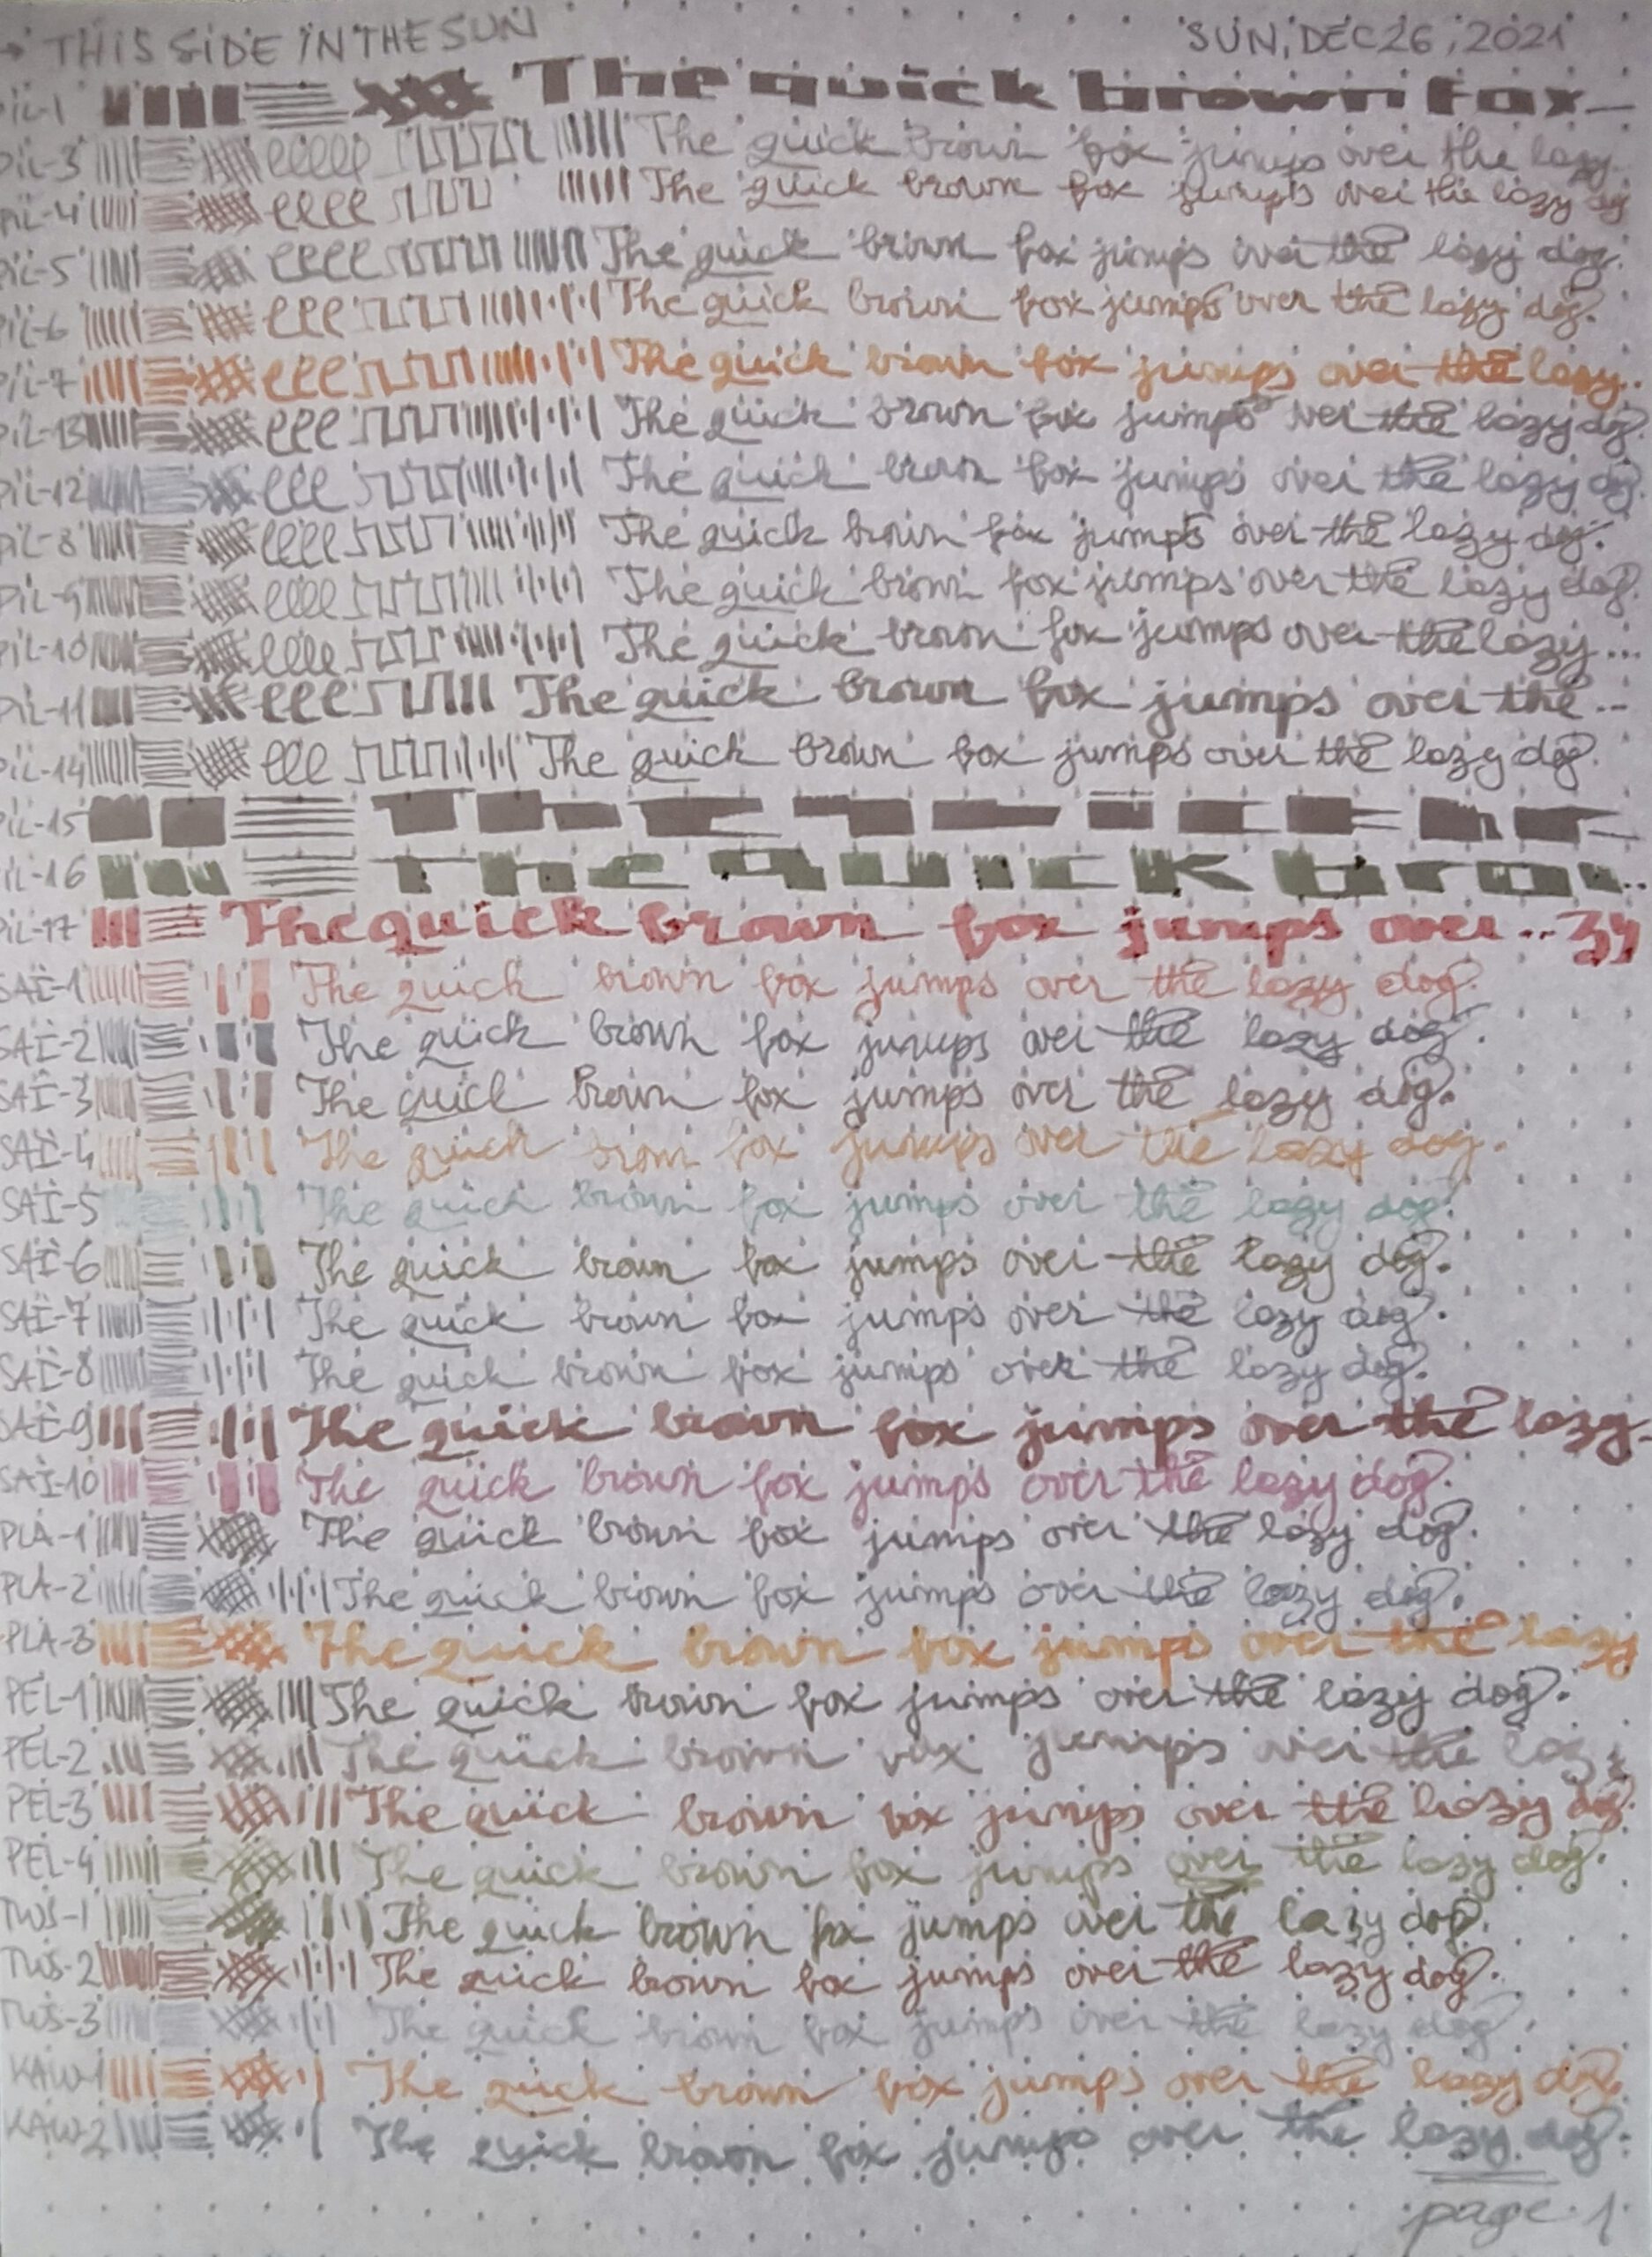 → THIS SIDE IN THE SUN SUN, DEC 26, 2021
PIL-1 The quick brown fox
PIL-3 The quick brown fox jumps over the lazy
PIL-4 The quick brown fox jumps over the lazy dog
PIL-5 The quick brown fox jumps over the lazy dog.
PIL-6 The quick brown fox jumps over the lazy dog.
PIL-7 The quick brown fox jumps over the lazy..
PIL-13 The quick brown fox jumps over the lazy dog.
PIL-12 The quick brown fox jumps over the lazy dog.
PIL-8 The quick brown fox jumps over the lazy dog.
PIL-9 The quick brown fox jumps over the lazy dog.
PIL-10 The quick brown fox jumps over the lazy...
PIL-11 The quick brown fox jumps over the...
PIL-14 The quick brown fox jumps over the lazy dog.
PIL-15 The quick br
PIL-16 The quick brow..
PIL-17 The quick brown fox jumps over...zy
SAI-1 The quick brown fox jumps over the lazy dog.
SAI-2 The quick brown fox jumps over the lazy dog.
SAI-3 The quick brown fox jumps over the lazy dog.
SAI-4 The quick brown fox jumps over the lazy dog.
SAI-5 The quick brown fox jumps over the lazy dog.
SAI-6 The quick brown fox jumps over the lazy dog.
SAI-7 The quick brown fox jumps over the lazy dog.
SAI-8 The quick brown fox jumps over the lazy dog.
SAI-9 The quick brown fox jumps over the lazy
SAI-10 The quick brown fox jumps over the lazy dog.
PLA-1 The quick brown fox jumps over the lazy dog.
PLA-2 The quick brown fox jumps over the lazy dog.
PLA-3 The quick brown fox jumps over the lazy
PEL-1 The quick brown fox jumps over the lazy dog.
PEL-2 The quick brown fox jumps over the lazy
PEL-3 The quick brown fox jumps over the lazy dog
PEL-4 The quick brown fox jumps over the lazy dog.
TWS-1 The quick brown fox jumps over the lazy dog.
TWS-2 The quick brown fox jumps over the lazy dog.
TWS-3 The quick brown fox jumps over the lazy dog.
KAW-1 The quick brown fox jumps over the lazy dog.
KAW-2 The quick brown fox jumps over the lazy dog.
page 1